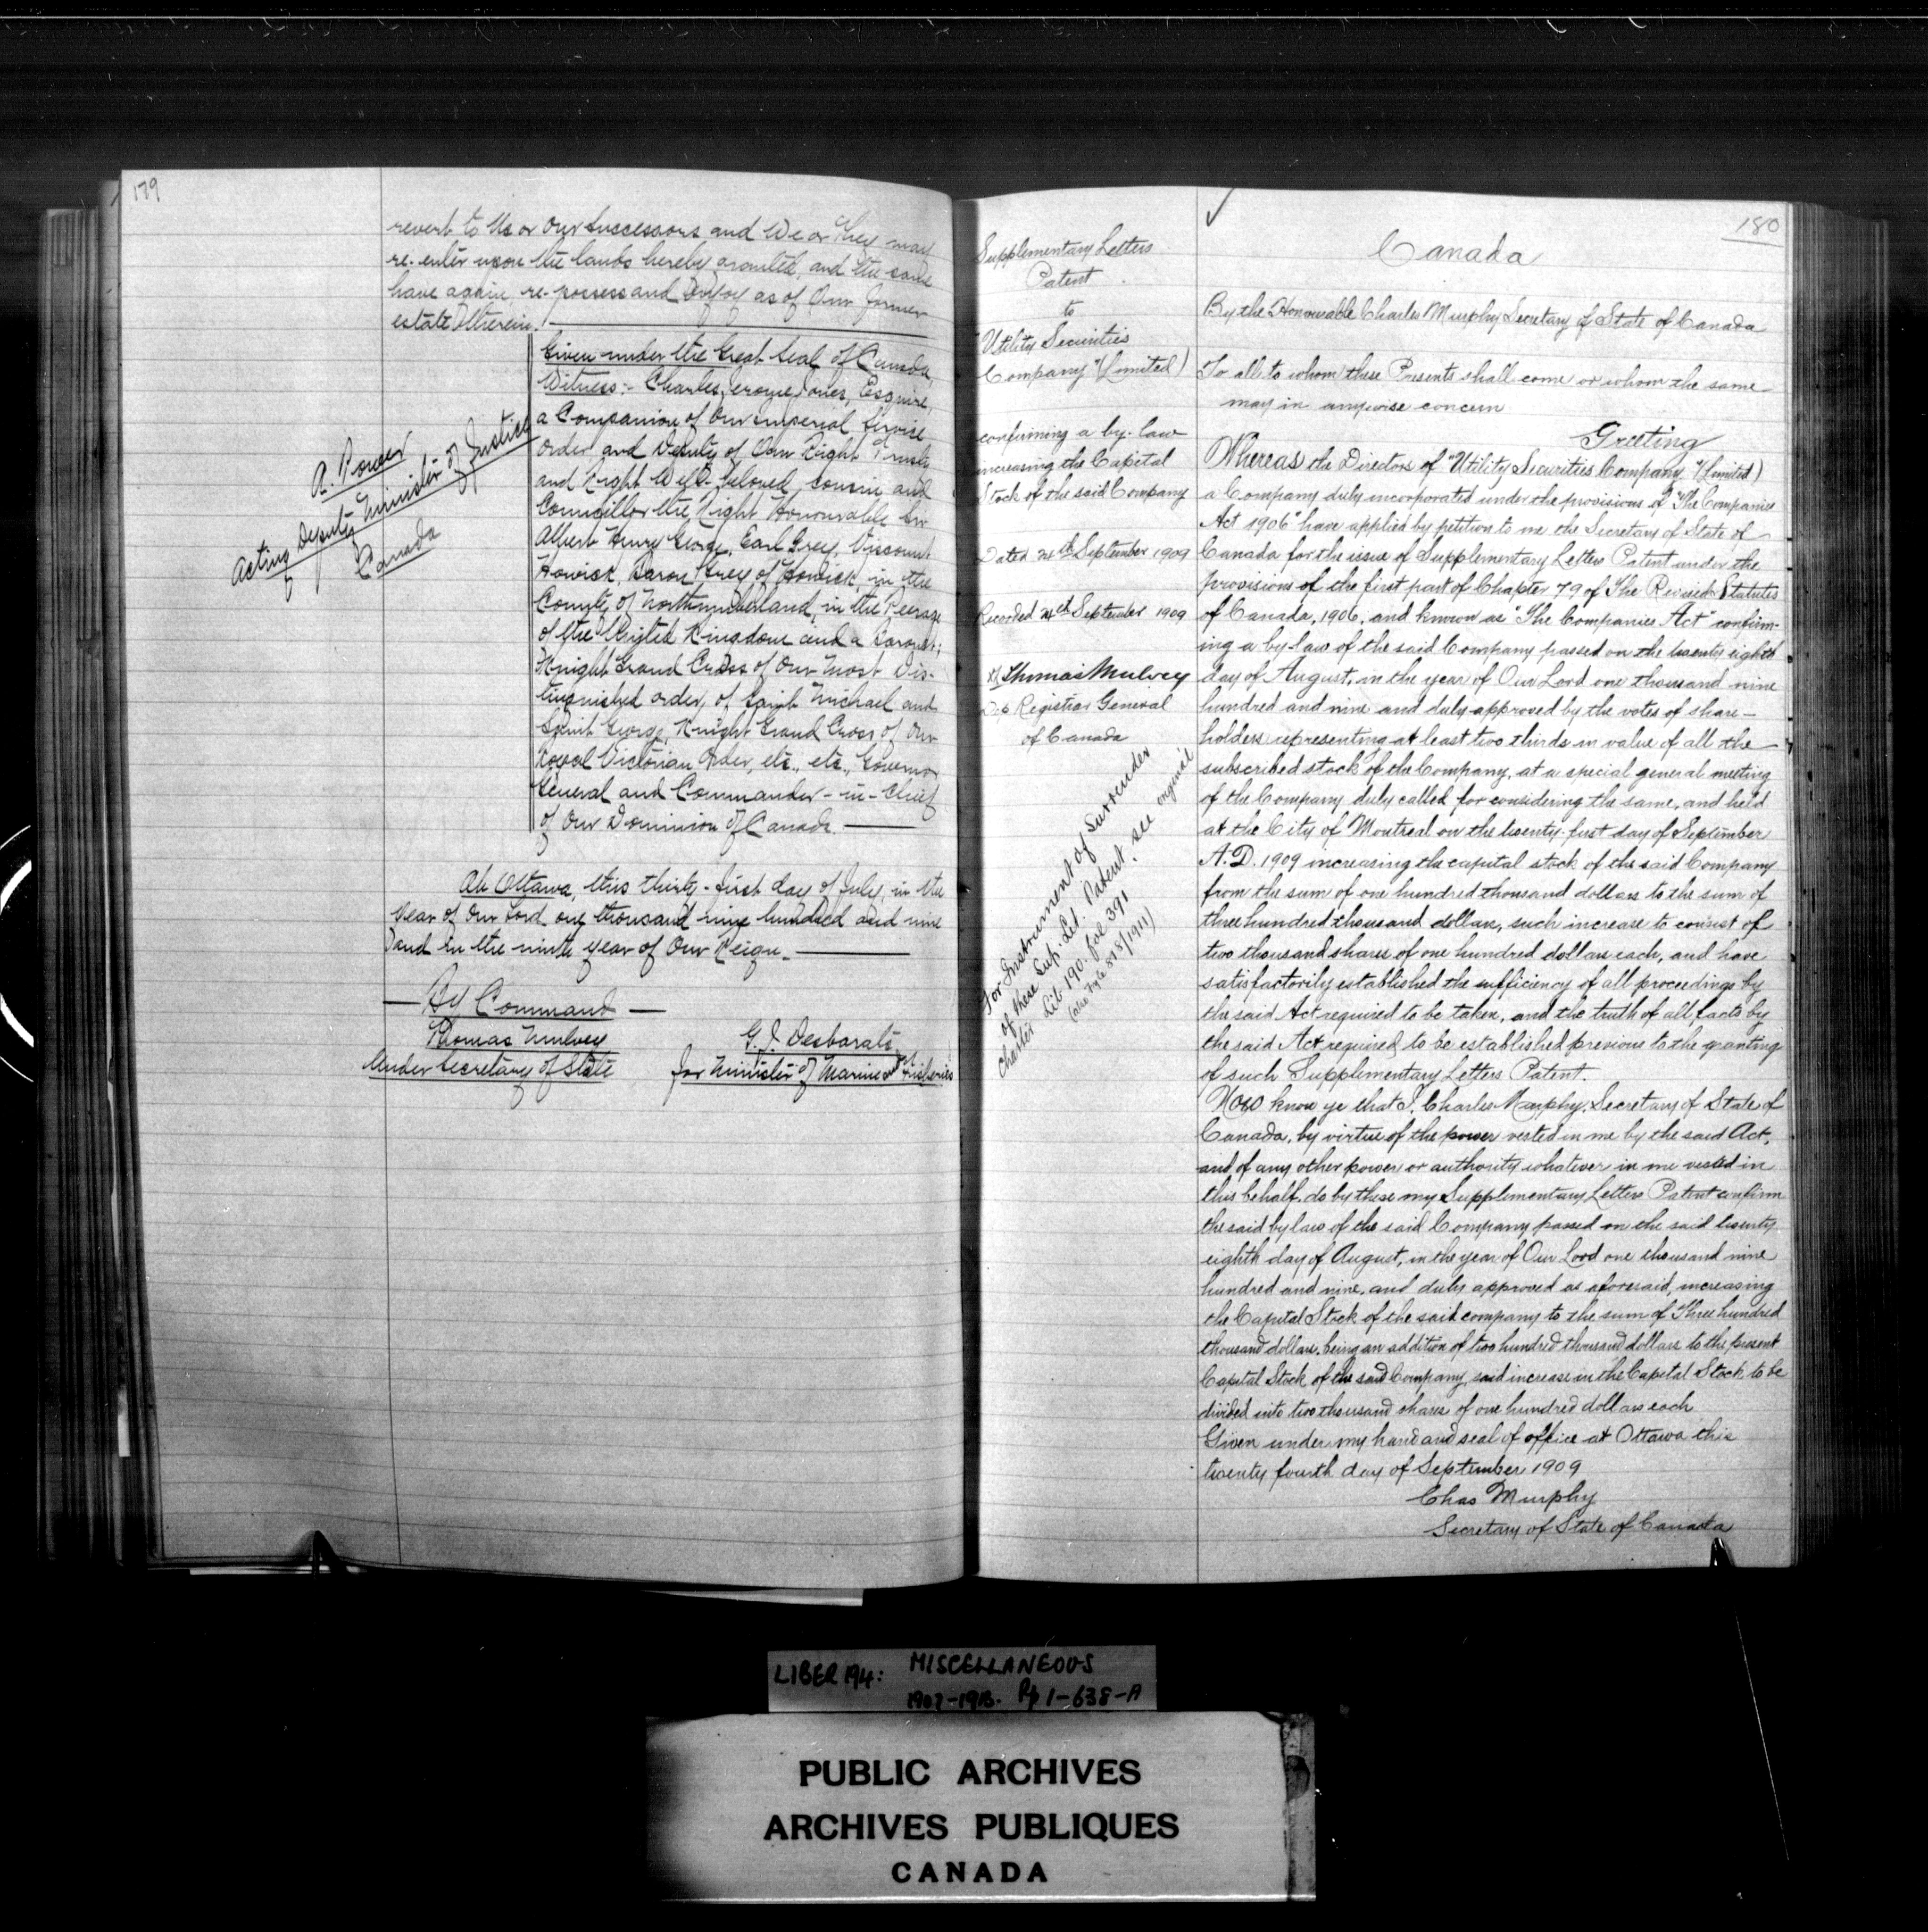 179
revert to Us or Our Successors and We or They may
re-enter upon the lands hereby granted, and the same
have again, re-possess and Enjoy as of Our former
estate therein.
Given under the Great Seal of Canada
Witness:- Charles Jerome Jones, Esquire,
a Companion of Our Imperial Service
Order and Deputy of Our Right Trusty
and Right Well-Beloved Cousin and
Councillor the Right Honourable Sir
Albert Henry George, Earl Grey, Viscount
Howick, Baron Grey of Howick, in the
County of Northumberland, in the Peerage
of the United Kingdom and a Baronet;
Knight Grand Cross of Our Most Dis-
tinguished Order of Saint Michael and
Saint George, Knight Grand Cross of Our
Royal Victorian Order, etc., etc., Governor
General and Commander-in-Chief
of Our Dominion of Canada.
A. Power
Acting Deputy Minister of Justice
Canada
At Ottawa, this thirty-first day of July, in the
Year of Our Lord one thousand nine hundred and nine
and in the ninth year of Our Reign.
By Command
Thomas Mulvey
Under Secretary of State
G. J. Desbarats
for Minister of Marine and Fisheries
180
Supplementary Letters
Patent
to
"Utility Securities
Company" (Limited)
confirming a by-law
increasing the Capital
Stock of the said Company
Dated 24th September 1909
Recorded 24th September 1909
Thomas Mulvey
Registrar General
of Canada
For Instrument of Surrender
of these Sup. Let. Patent. see original
Charter Lib 190. fol 391
(also Fyle 818/1911)
Canada
By the Honourable Charles Murphy Secretary of State of Canada
To all to whom these Presents shall come or whom the same
may in anywise concern
Greeting
Whereas the Directors of "Utility Securities Company" (Limited)
a Company duly incorporated under the provisions of "The Companies
Act 1906" have applied by petition to me the Secretary of State of
Canada for the issue of Supplementary Letters Patent under the
provisions of the first part of Chapter 79 of The Revised Statutes
of Canada, 1906, and known as "The Companies Act" confirm-
ing a by law of the said Company passed on the twenty eighth
day of August, in the year of Our Lord one thousand nine
hundred and nine and duly approved by the votes of share-
holders representing at least two thirds in value of all the
subscribed stock of the Company, at a special general meeting
of the Company duly called for considering the same, and held
at the City of Montreal on the twenty-first day of September
A.D. 1909 increasing the capital stock of the said Company
from the sum of one hundred thousand dollars to the sum of
three hundred thousand dollars, such increase to consist of
two thousand shares of one hundred dollars each, and have
satisfactorily established the sufficiency of all proceedings by
the said Act required to be taken, and the truth of all facts by
the said Act required to be established previous to the granting
of such Supplementary Letters Patent.
Now know ye that I, Charles Murphy, Secretary of State of
Canada, by virtue of the power vested in me by the said Act,
and of any other power or authority whatever in me vested in
this behalf, do by these my Supplementary Letters Patent confirm
the said by law of the said Company passed on the said twenty
eighth day of August, in the year of Our Lord one thousand nine
hundred and nine, and duly approved as aforesaid, increasing
the Capital Stock of the said company to the sum of Three hundred
thousand dollars, being an addition of two hundred thousand dollars to the present
Capital Stock of the said Company, said increase in the Capital Stock to be
divided into two thousand shares of one hundred dollars each
Given under my hand and seal of office at Ottawa this
twenty fourth day of September 1909
Chas Murphy
Secretary of State of Canada
LIBER 194: MISCELLANEOUS
1907-1913. Pp 1-638-A
PUBLIC ARCHIVES
ARCHIVES PUBLIQUES
CANADA